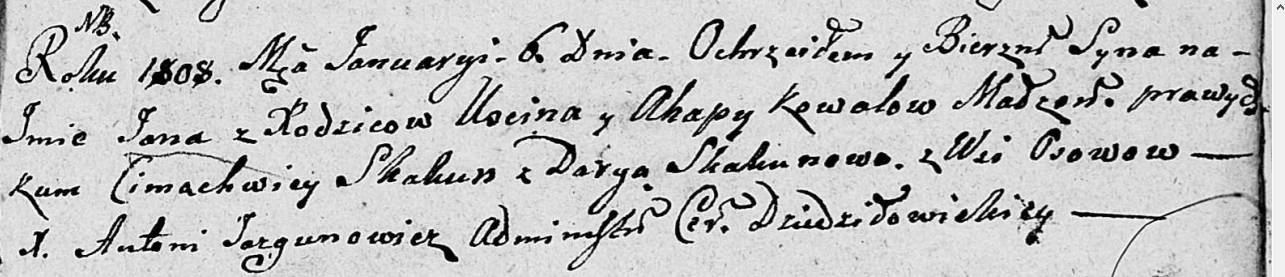 NB.
Roku 1808. Mca Januaryi. 6. Dnia. Ochrzciłem y Bierzmł Syna na-
Imie Jana z Rodzicow Uscina y Ahapy Kowalow Małżeń. prawych.
Kum Cimachwiey Skakun z Daryą Skakunowo. z Wsi Osowow —
X. Antoni Jazgunowicz Administr Cer. Dziedziłowickiey —